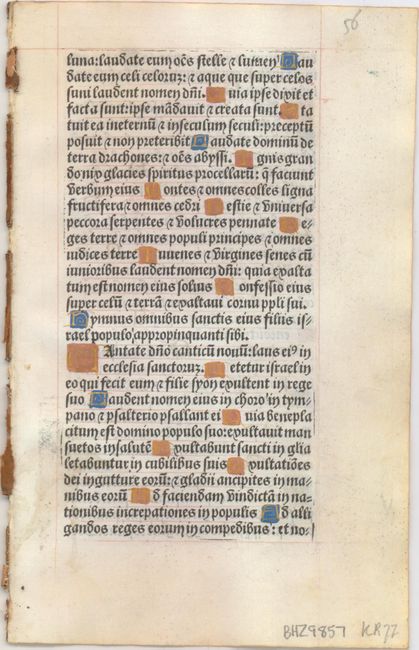 56
luna: laudate eum oēs stelle ⁊ lumen Lau
date eum celi celorum: ⁊ aque que super celos
sunt laudent nomen dñi. Quia ipse dixit et
facta sunt: ipse mādavit ⁊ creata sunt. Sta
tuit ea in eternū ⁊ in seculum seculi: preceptū
posuit ⁊ non preteribit Laudate dominū de
terra drachones: ⁊ oēs abyssi. Ignis gran
do nix glacies spiritus procellarū: q̄ faciunt
verbum eius Montes ⁊ omnes colles ligna
fructifera ⁊ omnes cedri Bestie ⁊ vniversa
peccora serpentes ⁊ volucres pennate Re-
ges terre ⁊ omnes populi principes ⁊ omnes
iudices terre Iuuenes ⁊ virgines senes cū
iunioribus laudent nomen dñi: quia exalta
tum est nomen eius solius Confessio eius
super celū ⁊ terrā ⁊ exaltavi cornu ppli sui.
Hymnus omnibus sanctis eius filiis is-
rael populo appropinquanti sibi.
Cantate dño canticū nouū: laus eiꝰ in
ecclesia sanctorum. Letetur israel in
eo qui fecit eum ⁊ filie syon exultent in rege
suo Laudent nomen eius in choro in tym-
pano ⁊ psalterio psallant ei Quia benepla
citum est domino populo suo: exultauit man
suetos in salutē Exultabunt sancti in glīa
letabuntur in cubilibus suis Exultatiōes
dei in gutture eorū: ⁊ gladii ancipites in ma-
nibus eorū Ad faciendam vindictā in na-
tionibus increpationes in populis Ad alli
gandos reges eorum in compedibus: et no-
BHZ9857 KR77